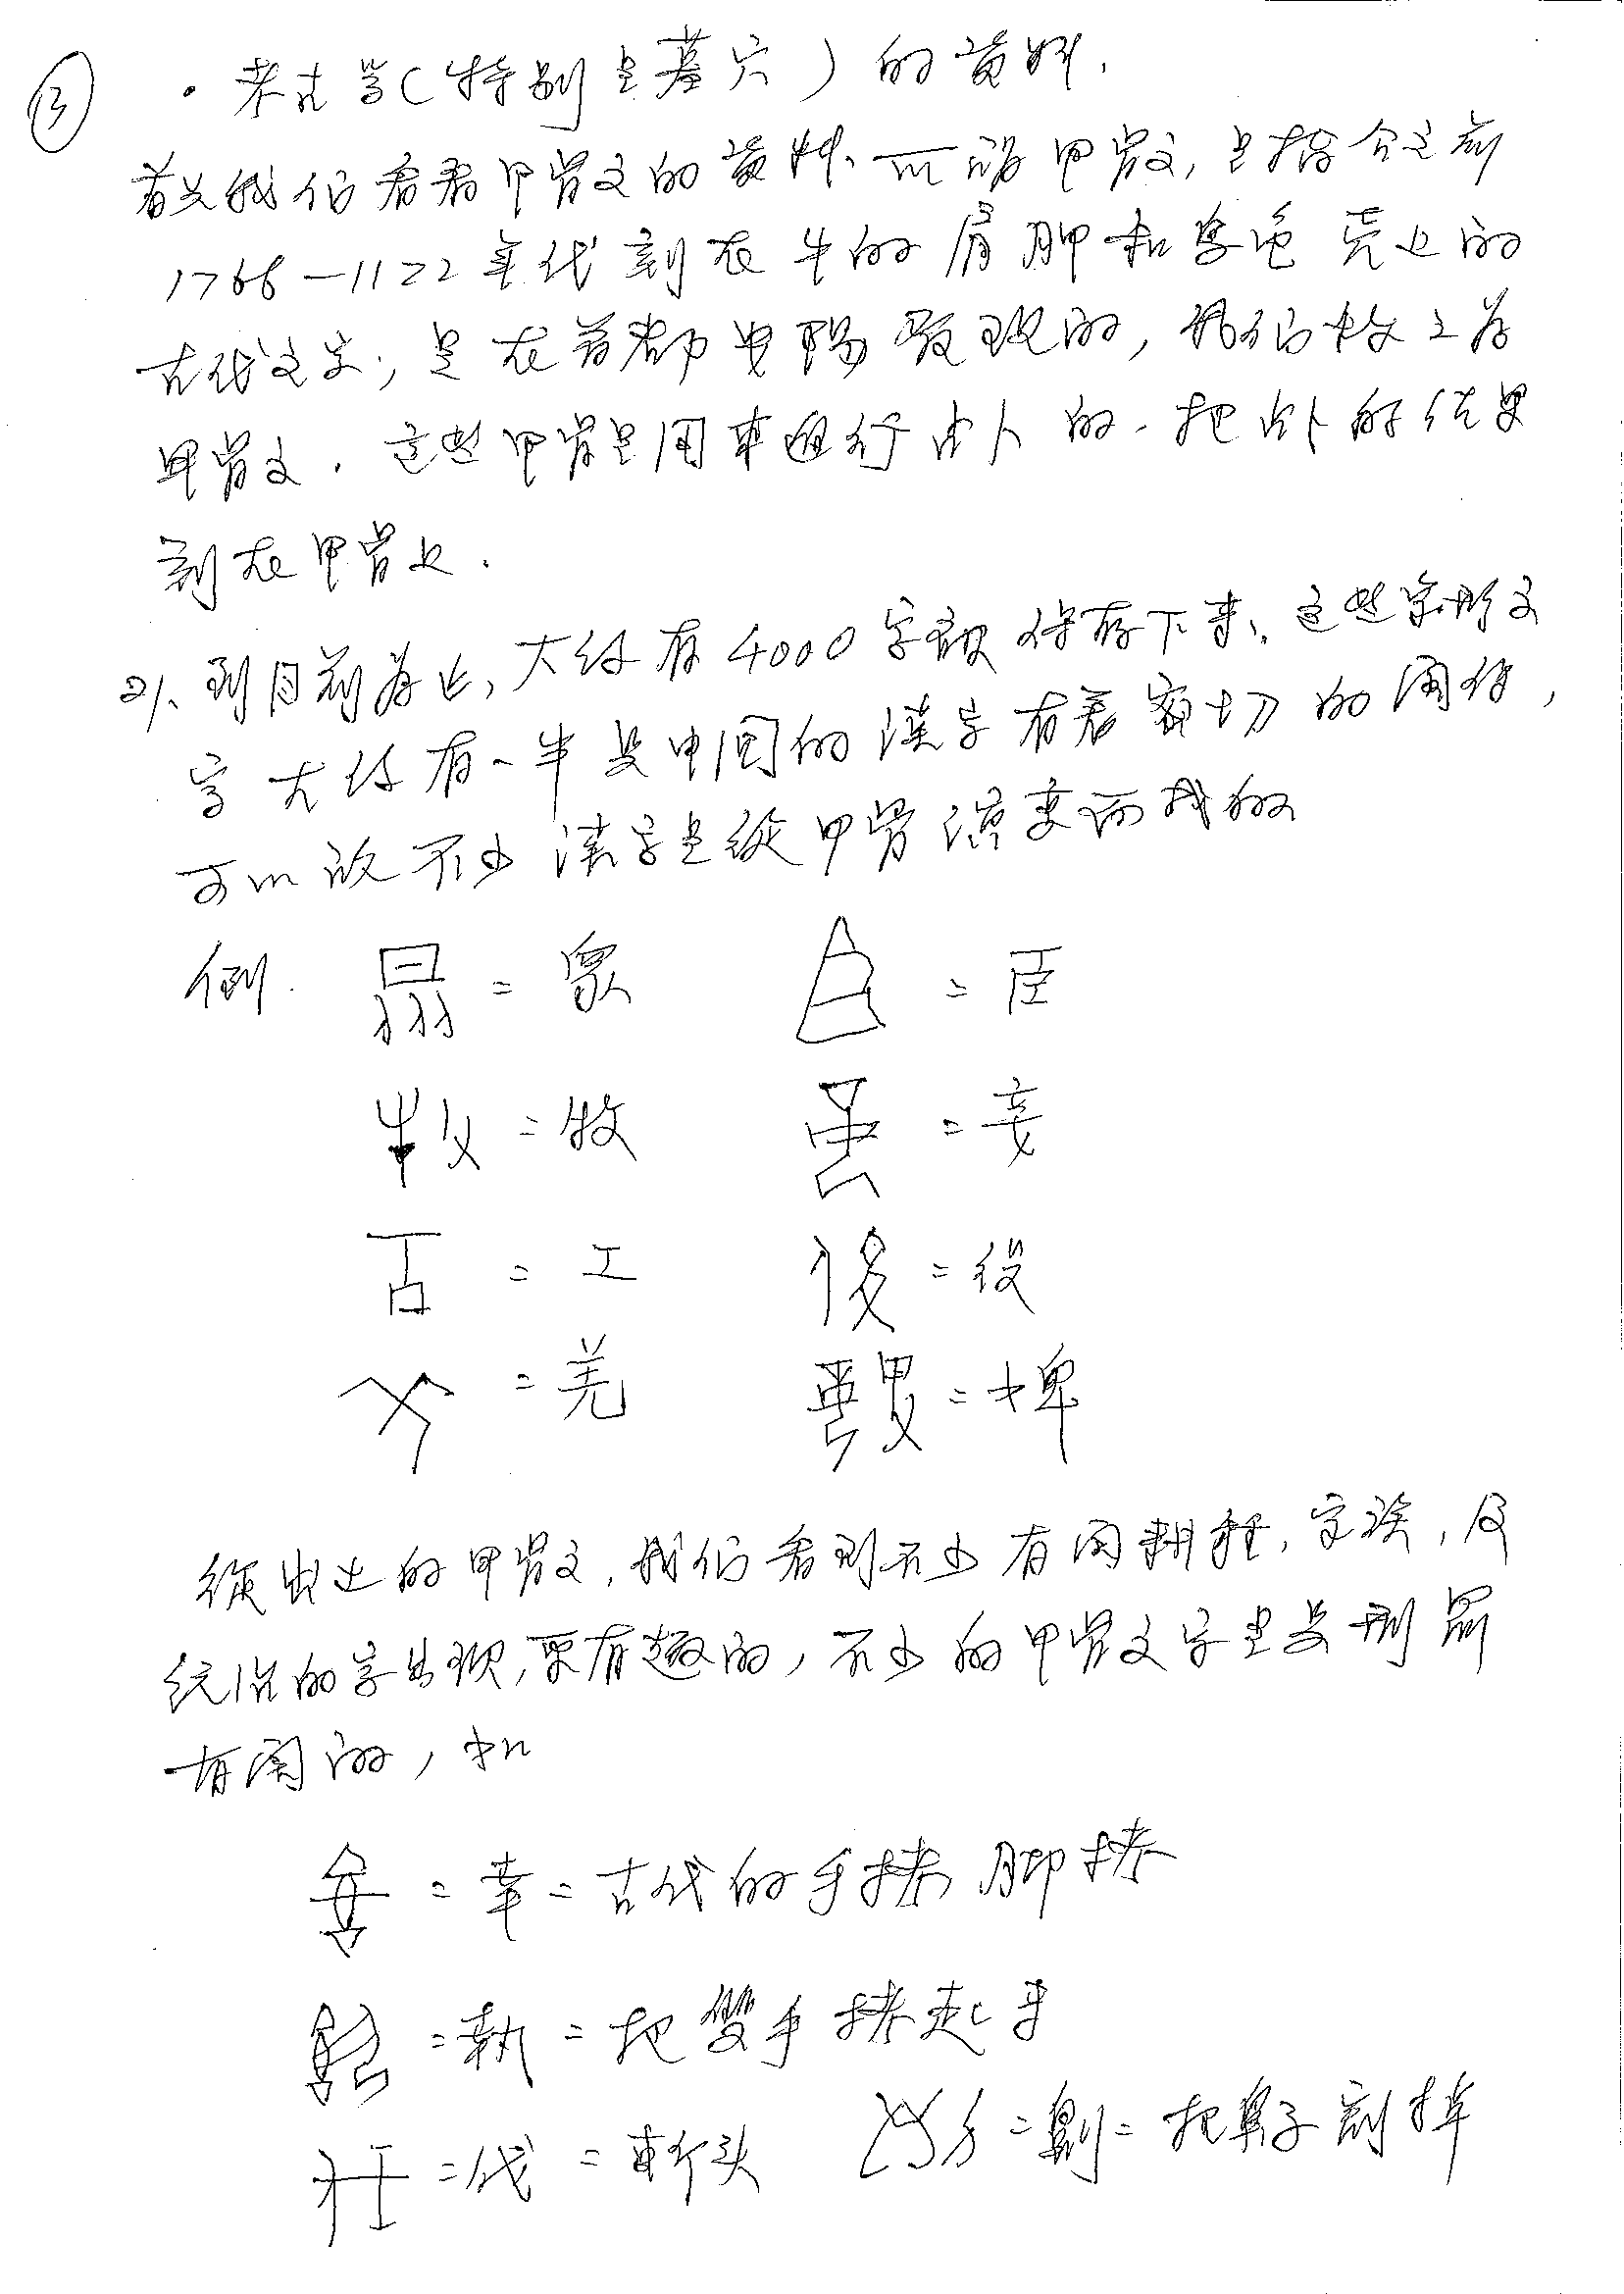 ③ · 考古学(特别是墓穴)的资料.
首先我们看看甲骨文的资料、所谓甲骨文,是指公元前
1766-1122年代刻在牛的肩胛和乌龟壳上的
古代文字;是在首都安陽發现的,我们教之为
甲骨文. 这些甲骨是用来進行占卜的. 把占卜的结果
刻在甲骨上.
2\、到目前为止,大约有4000字被保存下来、这些字形文
字大约有一半是中国的漢字有着密切的関係,
可以说不少漢字是從甲骨演变而成的
例. = 衆 = 臣
= 牧 = 妾
= 工 = 役
= 羌 = 婢
從出土的甲骨文,我们看到不少有関耕種,宗族,及
统治的字出现,更有趣的,不少的甲骨文字是与刑罰
有関的,如
= 幸 = 古代的手拷脚拷
= 執 = 把雙手拷起来
= 伐 = 斬头 = 劓 = 把鼻子割掉